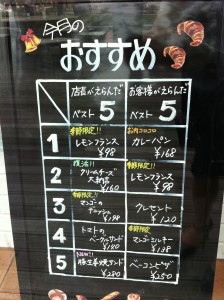 今月の
おすすめ
店長がえらんだ
ベスト5
お客様がえらんだ
ベスト5
1
季節限定!!
レモンフランス
¥98
お肉ゴロゴロ
カレーパン
¥168
2
復活!!
クリームチーズ
¥160
季節限定!!
レモンフランス
¥98
3
季節限定!!
マンゴーの
デニッシュ
¥198
クレセント
¥120
4
トマトの
ベーグルサンド
¥180
季節限定!!
マンゴー
¥138
5
NEW!!
豚生姜焼サンド
¥280
ベーコンピザ
¥250